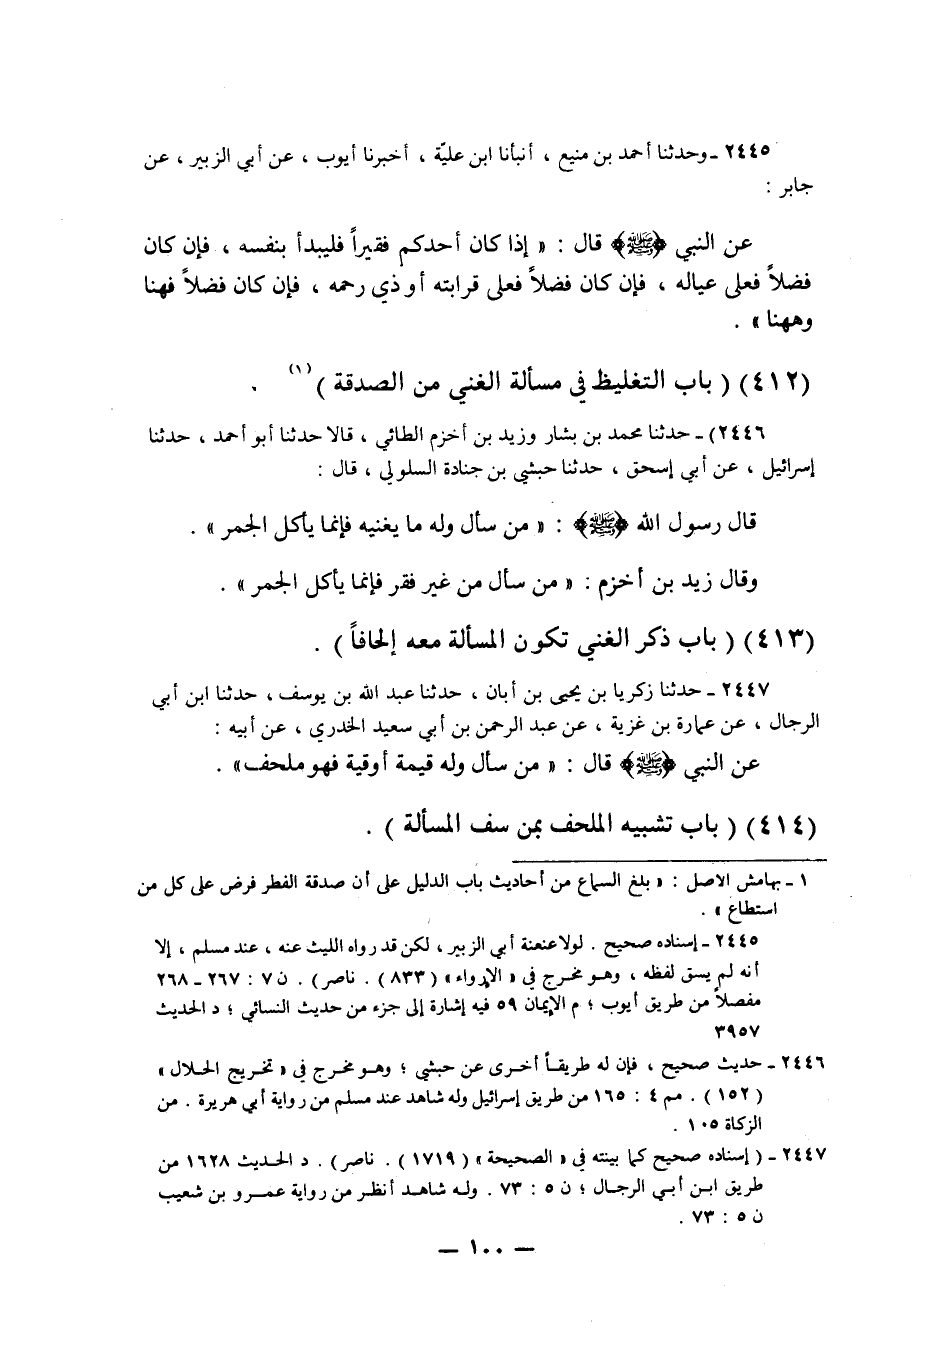 ٢٤٤٥ ـ وحدثنا أحمد بن منيع ، أنبأنا ابن عليّة ، أخبرنا أيوب ، عن أبي الزبير ، عن
جابر :
عن النبي ﴿ﷺ﴾ قال : « إذا كان أحدكم فقيراً فليبدأ بنفسه ، فإن كان
فضلاً فعلى عياله ، فإن كان فضلاً فعلى قرابته أو ذي رحمه ، فإن كان فضلاً فهنا
وههنا » .
(٤١٢) ( باب التغليظ في مسألة الغني من الصدقة )(١) .
٢٤٤٦) ـ حدثنا محمد بن بشار وزيد بن أخزم الطائي ، قالا حدثنا أبو أحمد ، حدثنا
إسرائيل ، عن أبي إسحق ، حدثنا حبشي بن جنادة السلولي ، قال :
قال رسول الله ﴿ﷺ﴾ : « من سأل وله ما يغنيه فإنما يأكل الجمر » .
وقال زيد بن أخزم : « من سأل من غير فقر فإنما يأكل الجمر » .
(٤١٣) ( باب ذكر الغني تكون المسألة معه إلحافاً ) .
٢٤٤٧ ـ حدثنا زكريا بن يحيى بن أبان ، حدثنا عبد الله بن يوسف ، حدثنا ابن أبي
الرجال ، عن عمارة بن غزية ، عن عبد الرحمن بن أبي سعيد الخدري ، عن أبيه :
عن النبي ﴿ﷺ﴾ قال : « من سأل وله قيمة أوقية فهو ملحف» .
(٤١٤) ( باب تشبيه الملحف بمن سف المسألة ) .
١ ـ بهامش الاصل : « بلغ السماع من أحاديث باب الدليل على أن صدقة الفطر فرض على كل من
استطاع » .
٢٤٤٥ ـ إسناده صحيح . لولا عنعنة أبي الزبير ، لكن قد رواه الليث عنه ، عند مسلم ، إلا
أنه لم يسق لفظه ، وهو مخرج في « الإرواء » ( ٨٣٣ ) . ناصر) . ن ٧ : ٢٦٧ ـ ٢٦٨
مفصلاً من طريق أيوب ؛ م الإيمان ٥٩ فيه إشارة إلى جزء من حديث النسائي ؛ د الحديث
٣٩٥٧
٢٤٤٦ ـ حديث صحيح ، فإن له طريقاً أخرى عن حبشي ؛ وهو مخرج في « تخريج الحلال »
( ١٥٢ ) . مم ٤ : ١٦٥ من طريق إسرائيل وله شاهد عند مسلم من رواية أبي هريرة . من
الزكاة ١٠٥ .
٢٤٤٧ ـ ( إسناده صحيح كما بينته في « الصحيحة » ( ١٧١٩ ) . ناصر) . د الحديث ١٦٢٨ من
طريق ابن أبي الرجال ؛ ن ٥ : ٧٣ . وله شاهد أنظر من رواية عمرو بن شعيب
ن ٥ : ٧٣ .
— ١٠٠ —